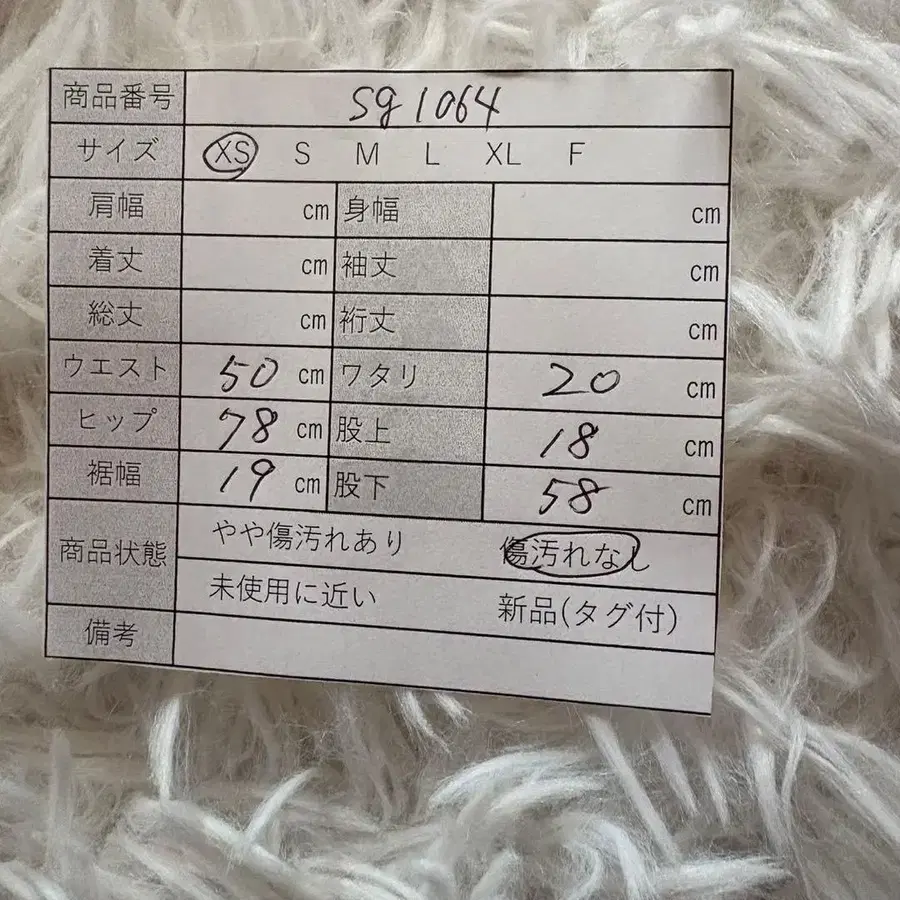 商品番号 sg1064
サイズ XS S M L XL F
肩幅 cm 身幅 cm
着丈 cm 袖丈 cm
総丈 cm 裄丈 cm
ウエスト 50 cm ワタリ 20 cm
ヒップ 78 cm 股上 18 cm
裾幅 19 cm 股下 58 cm
商品状態 やや傷汚れあり 傷汚れなし
未使用に近い 新品(タグ付)
備考